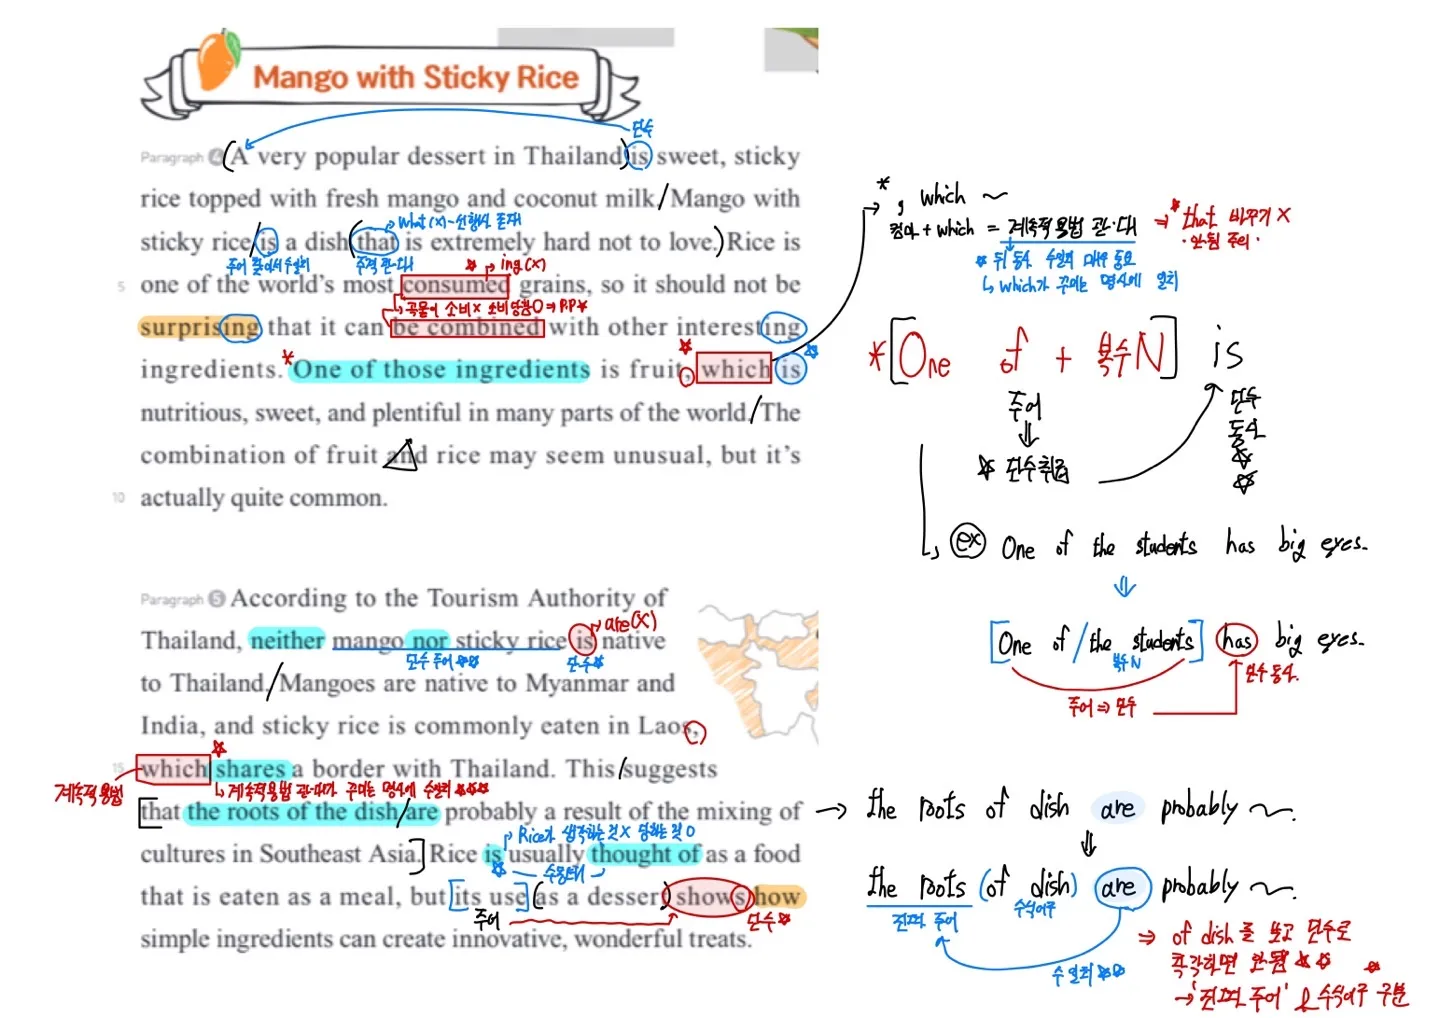 Mango with Sticky Rice
단수
Paragraph 4 A very popular dessert in Thailand is sweet, sticky
rice topped with fresh mango and coconut milk. Mango with
what (x) - 선행사 존재
sticky rice is a dish that is extremely hard not to love. Rice is
주격 관·대
ing (x)
5 one of the world's most consumed grains, so it should not be
곡물이 소비 X 소비당함 O ⇒ P.P ★
surprising that it can be combined with other interesting
ingredients. One of those ingredients is fruit, which is
nutritious, sweet, and plentiful in many parts of the world. The
combination of fruit and rice may seem unusual, but it's
10 actually quite common.
Paragraph 5 According to the Tourism Authority of
are (X)
Thailand, neither mango nor sticky rice is native
단수 주어 ☆☆
단수 ☆
to Thailand. Mangoes are native to Myanmar and
India, and sticky rice is commonly eaten in Laos,
15 which shares a border with Thailand. This suggests
계속적 용법
계속적용법 관·대가 꾸미는 명사에 수일치 ☆☆☆
that the roots of the dish are probably a result of the mixing of
cultures in Southeast Asia. Rice is usually thought of as a food
Rice가 생각하는 것 X 당하는 것 O
수동태
that is eaten as a meal, but its use (as a dessert) shows how
주어
단수 ☆
simple ingredients can create innovative, wonderful treats.
* , which ~
콤마 + which = 계속적용법 관·대 ⇒ * that 바꾸기 X
· 안됨 주의 ·
* 뒤 동사 수일치 매우 중요
↳ which가 꾸미는 명사에 일치
* [One of + 복수N] is
주어
⇓
☆ 단수취급
단수
동사
☆
☆
ex One of the students has big eyes.
⇓
[One of / the students] has big eyes.
복수 N
단수 동사.
주어 ⇒ 단수
→ the roots of dish are probably ~.
⇓
the roots (of dish) are probably ~.
진짜 주어
수식어구
수일치 ☆☆
⇒ of dish를 보고 단수로
착각하면 안됨 ☆☆
→ '진짜 주어' & 수식어구 구분